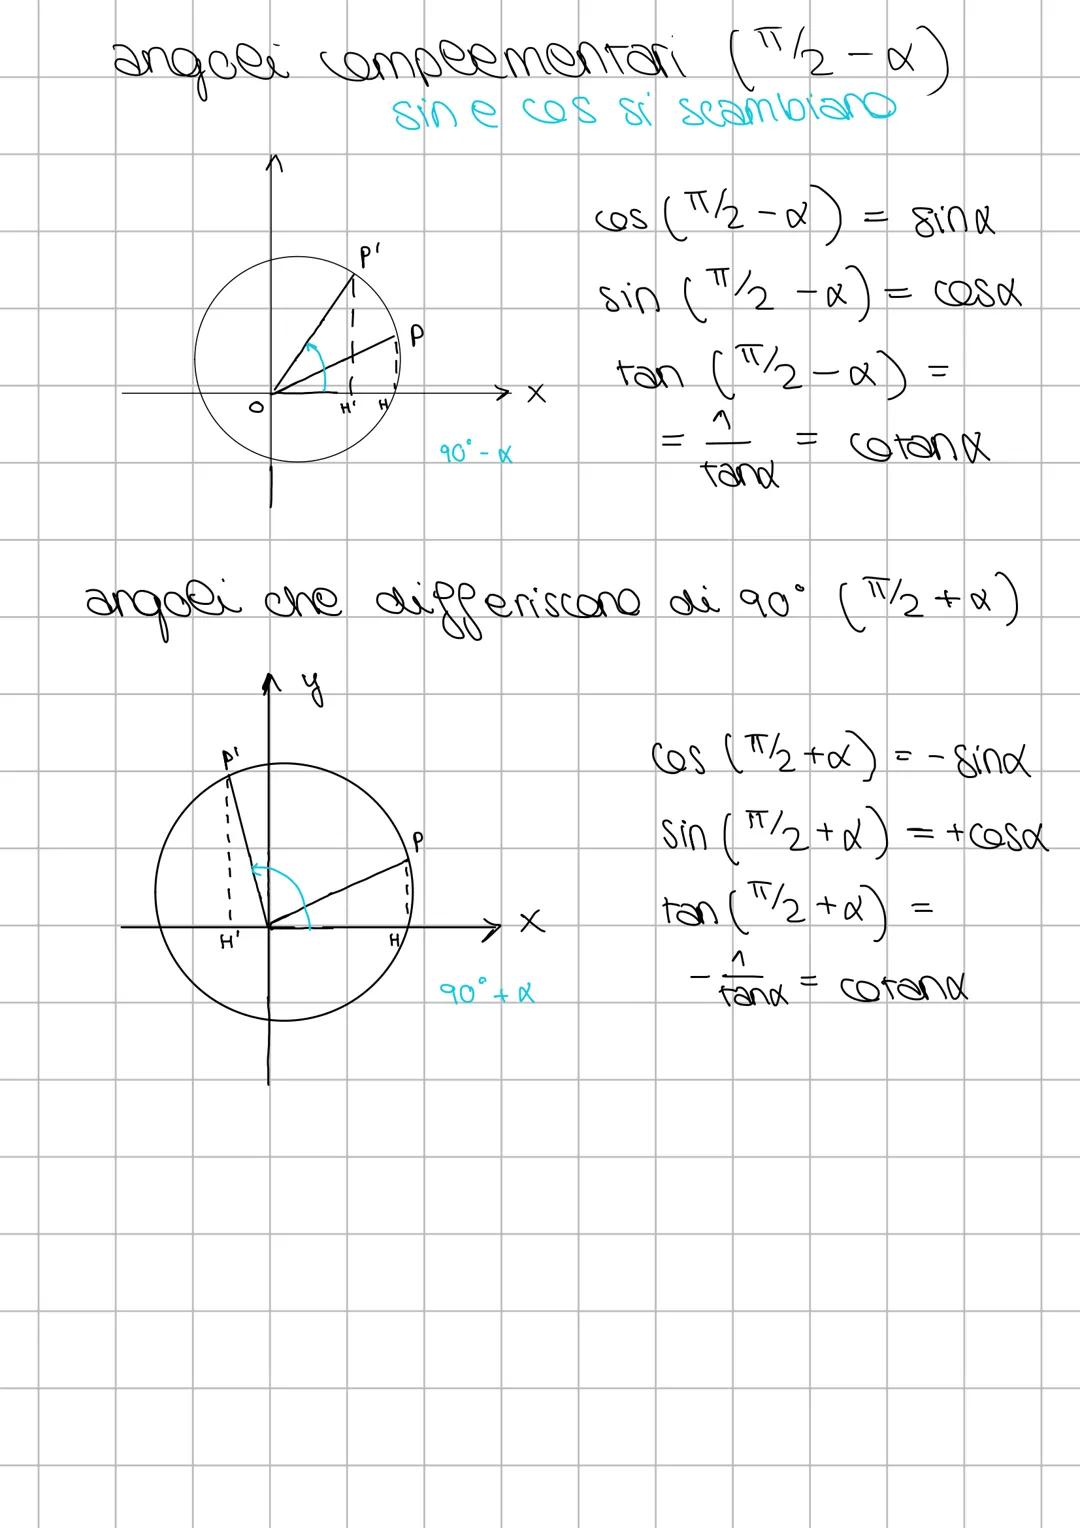 angoli complementari (π/2 - α)
sin e cos si scambiano
P'
P
O
H'
H
x
90° - α
cos (π/2 - α) = sinα
sin (π/2 - α) = cosα
tan (π/2 - α) =
= 1/tanα = cotanα
angoli che differiscono di 90° (π/2 + α)
y
P'
P
H'
H
x
90° + α
cos (π/2 + α) = - sinα
sin (π/2 + α) = + cosα
tan (π/2 + α) =
- 1/tanα = cotanα